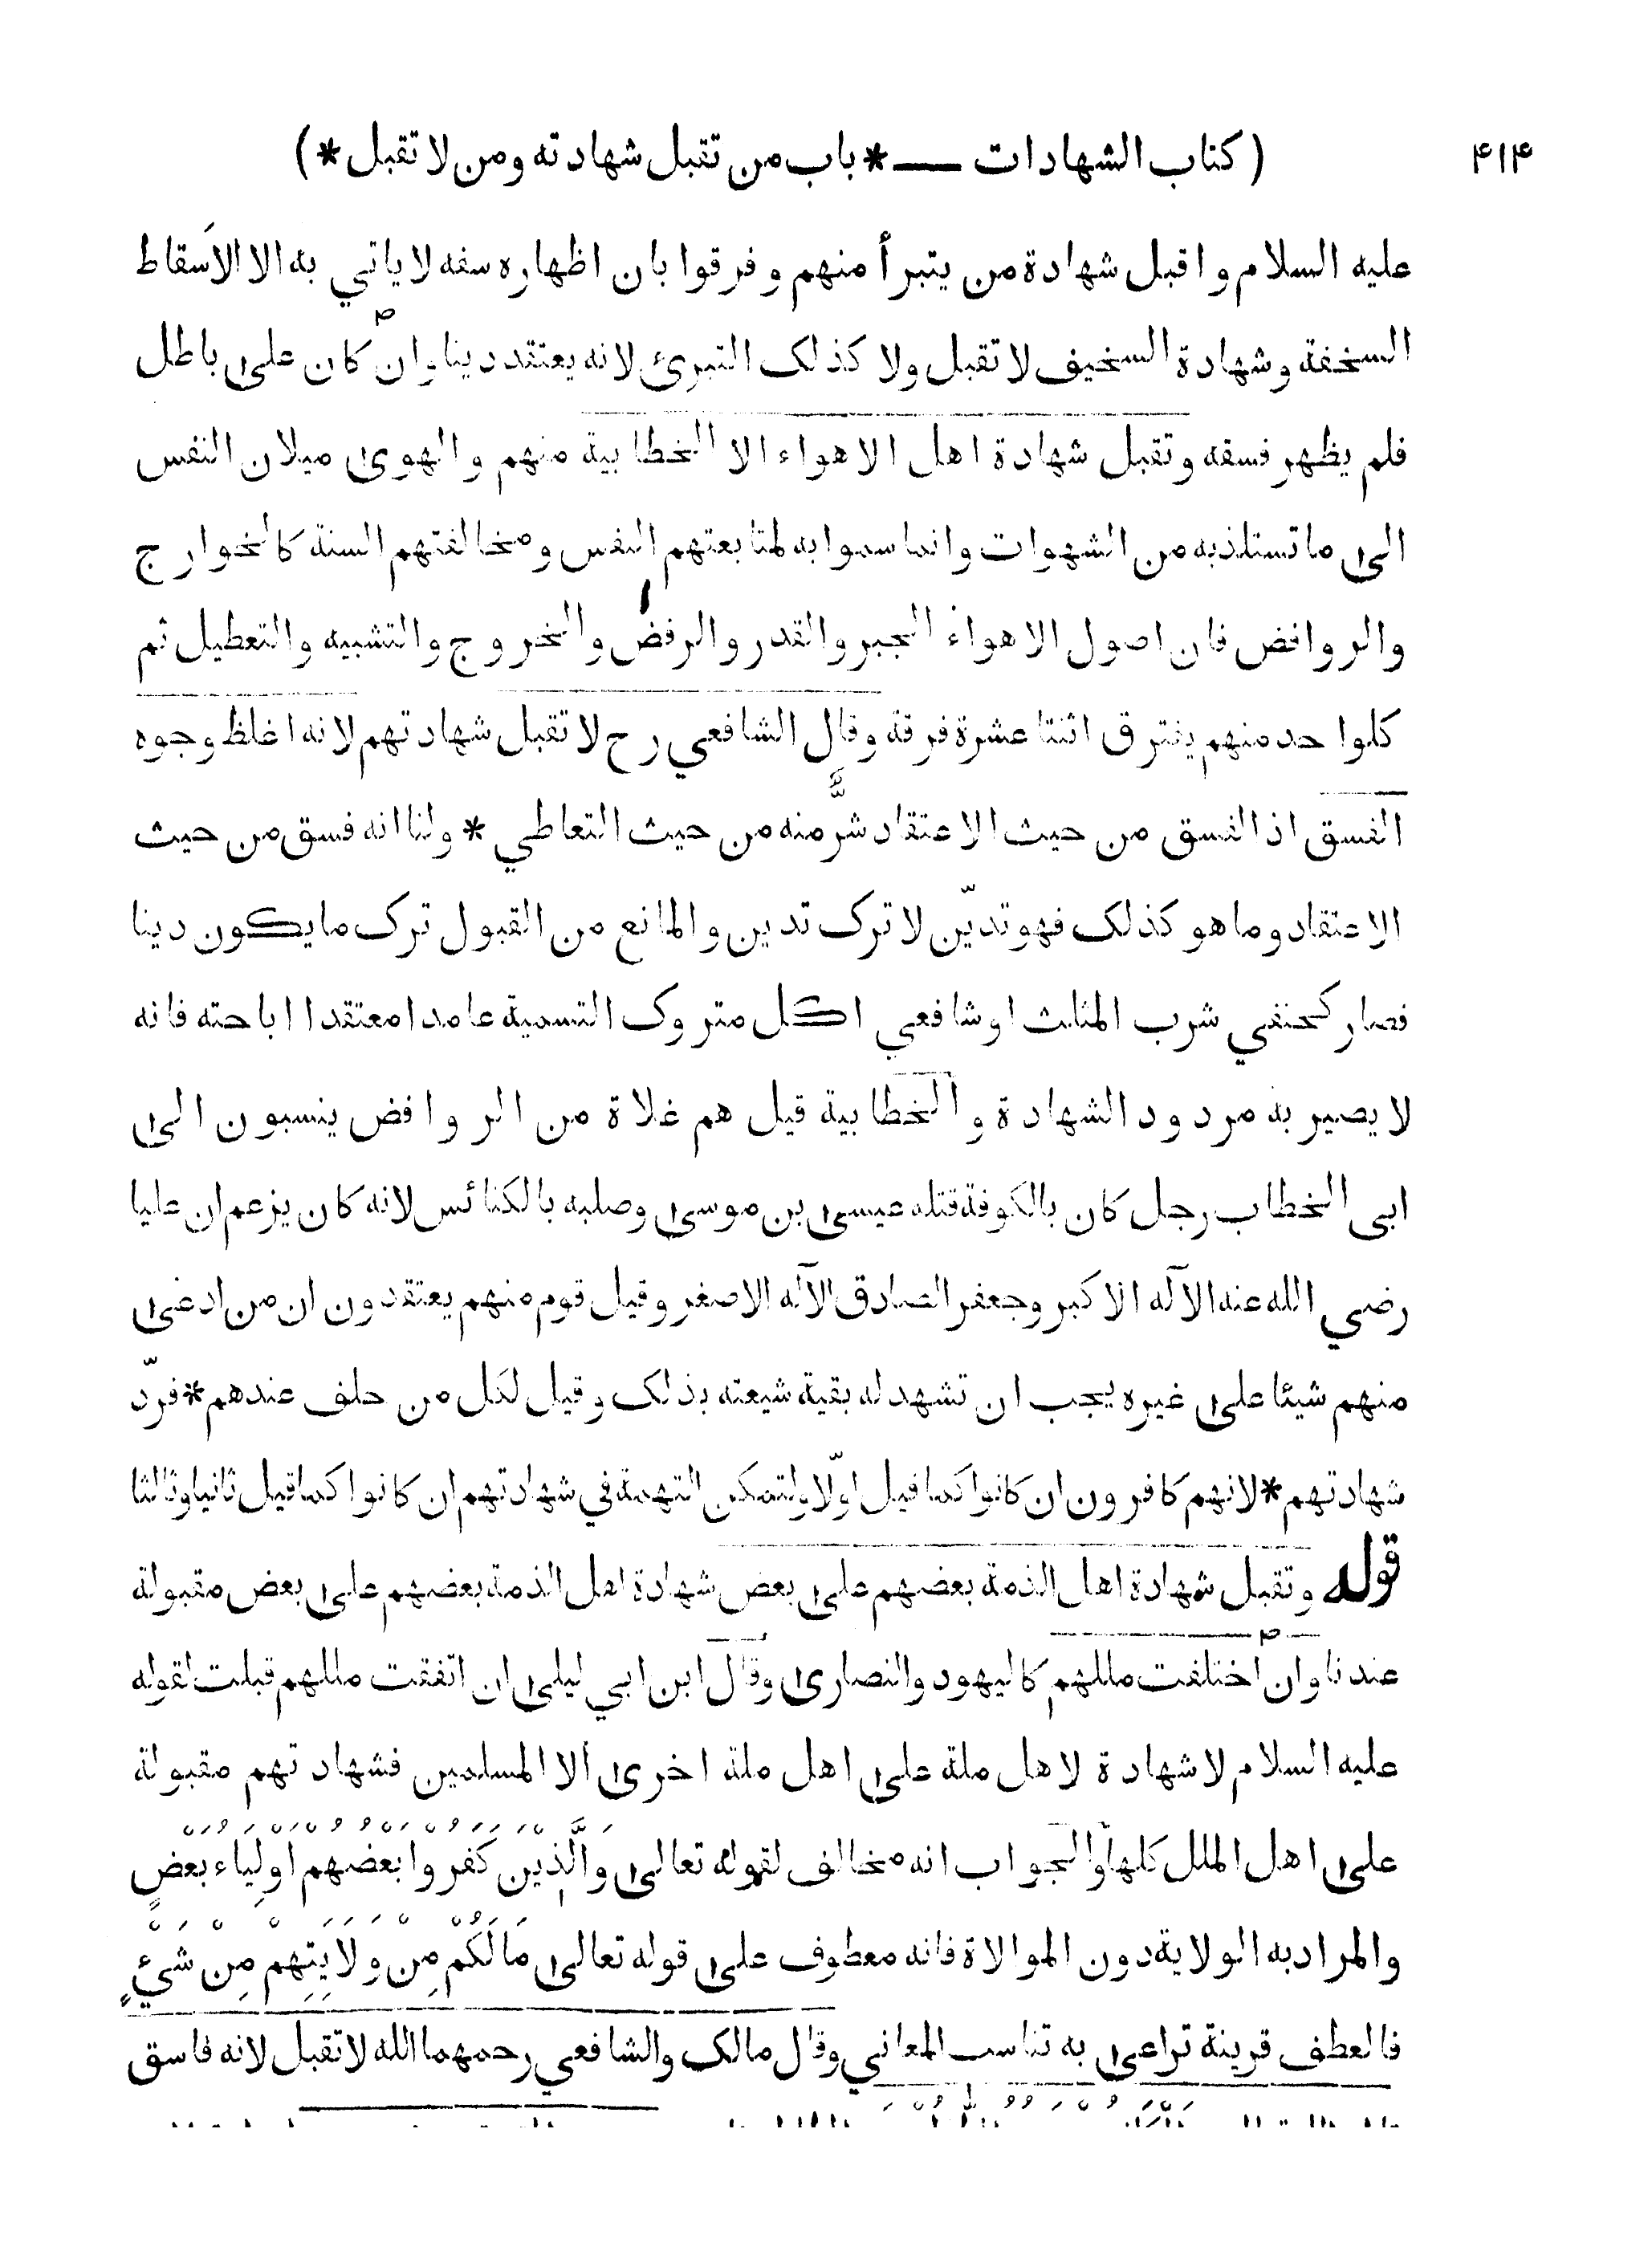 ( كتاب الشهادات — * باب من تقبل شهادته ومن لا تقبل * ) ۴۱۴
عليه السلام واقبل شهادة من يتبرأ منهم وفرقوا بان اظهاره سفه لا ياتي به الا الاسقاط
السخفة وشهادة السخيف لا تقبل ولا كذلك التبرئ لانه يعتقد دينا وان كان على باطل
فلم يظهر فسقه وتقبل شهادة اهل الاهواء الا الخطابية منهم والهوى ميلان النفس
الى ما تستلذ به من الشهوات وانما سموا به لمتابعتهم النفس ومخالفتهم السنة كالخوارج
والروافض فان اصول الاهواء الجبر والقدر والرفض والخروج والتشبيه والتعطيل ثم
كلواحد منهم يفترق اثنتا عشرة فرقة وقال الشافعي رح لا تقبل شهادتهم لانه اغلظ وجوه
الفسق اذ الفسق من حيث الاعتقاد شرٌّ منه من حيث التعاطي * ولنا انه فسق من حيث
الاعتقاد وما هو كذلك فهو تديّن لا ترك تدين والمانع من القبول ترك ما يكون دينا
فصار كحنفي شرب المثلث او شافعي اكل متروك التسمية عامدا معتقدا اباحته فانه
لا يصير به مردود الشهادة والخطابية قيل هم غلاة من الروافض ينسبون الى
ابى الخطاب رجل كان بالكوفة قتله عيسى بن موسى وصلبه بالكنائس لانه كان يزعم ان عليا
رضي الله عنه الآله الاكبر وجعفر الصادق الآله الاصغر وقيل قوم منهم يعتقدون ان من ادعى
منهم شيئا على غيره يجب ان تشهد له بقية شيعته بذلك وقيل لكل من حلف عندهم * فردّ
شهادتهم * لانهم كافرون ان كانوا كما قيل اوّلا ولتمكن التهمة في شهادتهم ان كانوا كما قيل ثانيا وثالثا
قوله وتقبل شهادة اهل الذمة بعضهم على بعض شهادة اهل الذمة بعضهم على بعض مقبولة
عندنا وان اختلفت مللهم كاليهود والنصارى وقال ابن ابي ليلى ان اتفقت مللهم قبلت لقوله
عليه السلام لا شهادة لاهل ملة على اهل ملة اخرى الا المسلمين فشهادتهم مقبولة
على اهل الملل كلها والجواب انه مخالف لقوله تعالى وَالَّذِيْنَ كَفَرُوا بَعْضُهُمْ اَوْلِيَاءُ بَعْضٍ
والمراد به الولاية دون الموالاة فانه معطوف على قوله تعالى مَا لَكُمْ مِنْ وَلَايَتِهِمْ مِنْ شَيْءٍ
فالعطف قرينة تراعى به تناسب المعاني وقال مالك والشافعي رحمهما الله لا تقبل لانه فاسق